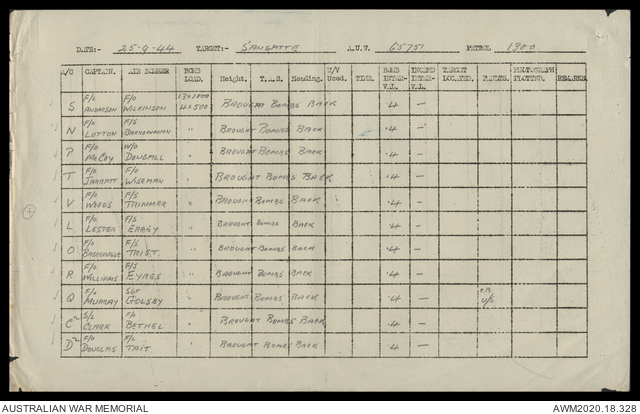 DATE:- 25-9-44 TARGET:- SANGATTE A.U.W. 65751 PETROL 1300
A/C CAPTAIN. AIR BOMBER BOMB LOAD. Height. T.A.S. Heading. U/V Used. TIME. BOMB INTER-VAL. INCEND INTER-VAL. TARGET LOCATED. RESULTS. PHOTOGRAPH PLOTTED. REMARKS
S F/L ANDERSON F/O WILKINSON 13x1000 4x500 BROUGHT BOMBS BACK .4 —
N F/O LUTTON F/S " BROUGHT BOMBS BACK .4 —
P F/O McCOY W/O DOUGALL " BROUGHT BOMBS BACK .4 —
T F/O JARRATT F/O WISEMAN " BROUGHT BOMBS BACK .4 —
V F/O WOODS F/S TRIMMER " BROUGHT BOMBS BACK .4 —
L F/O LESTER F/S ERREY " BROUGHT BOMBS BACK .4 —
O F/O BASKERVILLE F/S TRIST " BROUGHT BOMBS BACK .4 —
R F/O WILLIAMS F/S EYRES " BROUGHT BOMBS BACK .4 —
Q F/O MURRAY SGT GOLSBY " BROUGHT BOMBS BACK .4 — U/S
C² S/L CLARK F/O BETHEL " BROUGHT BOMBS BACK .4 —
D² F/O DOUGLAS F/L TAIT " BROUGHT BOMBS BACK .4 —
AUSTRALIAN WAR MEMORIAL AWM2020.18.328